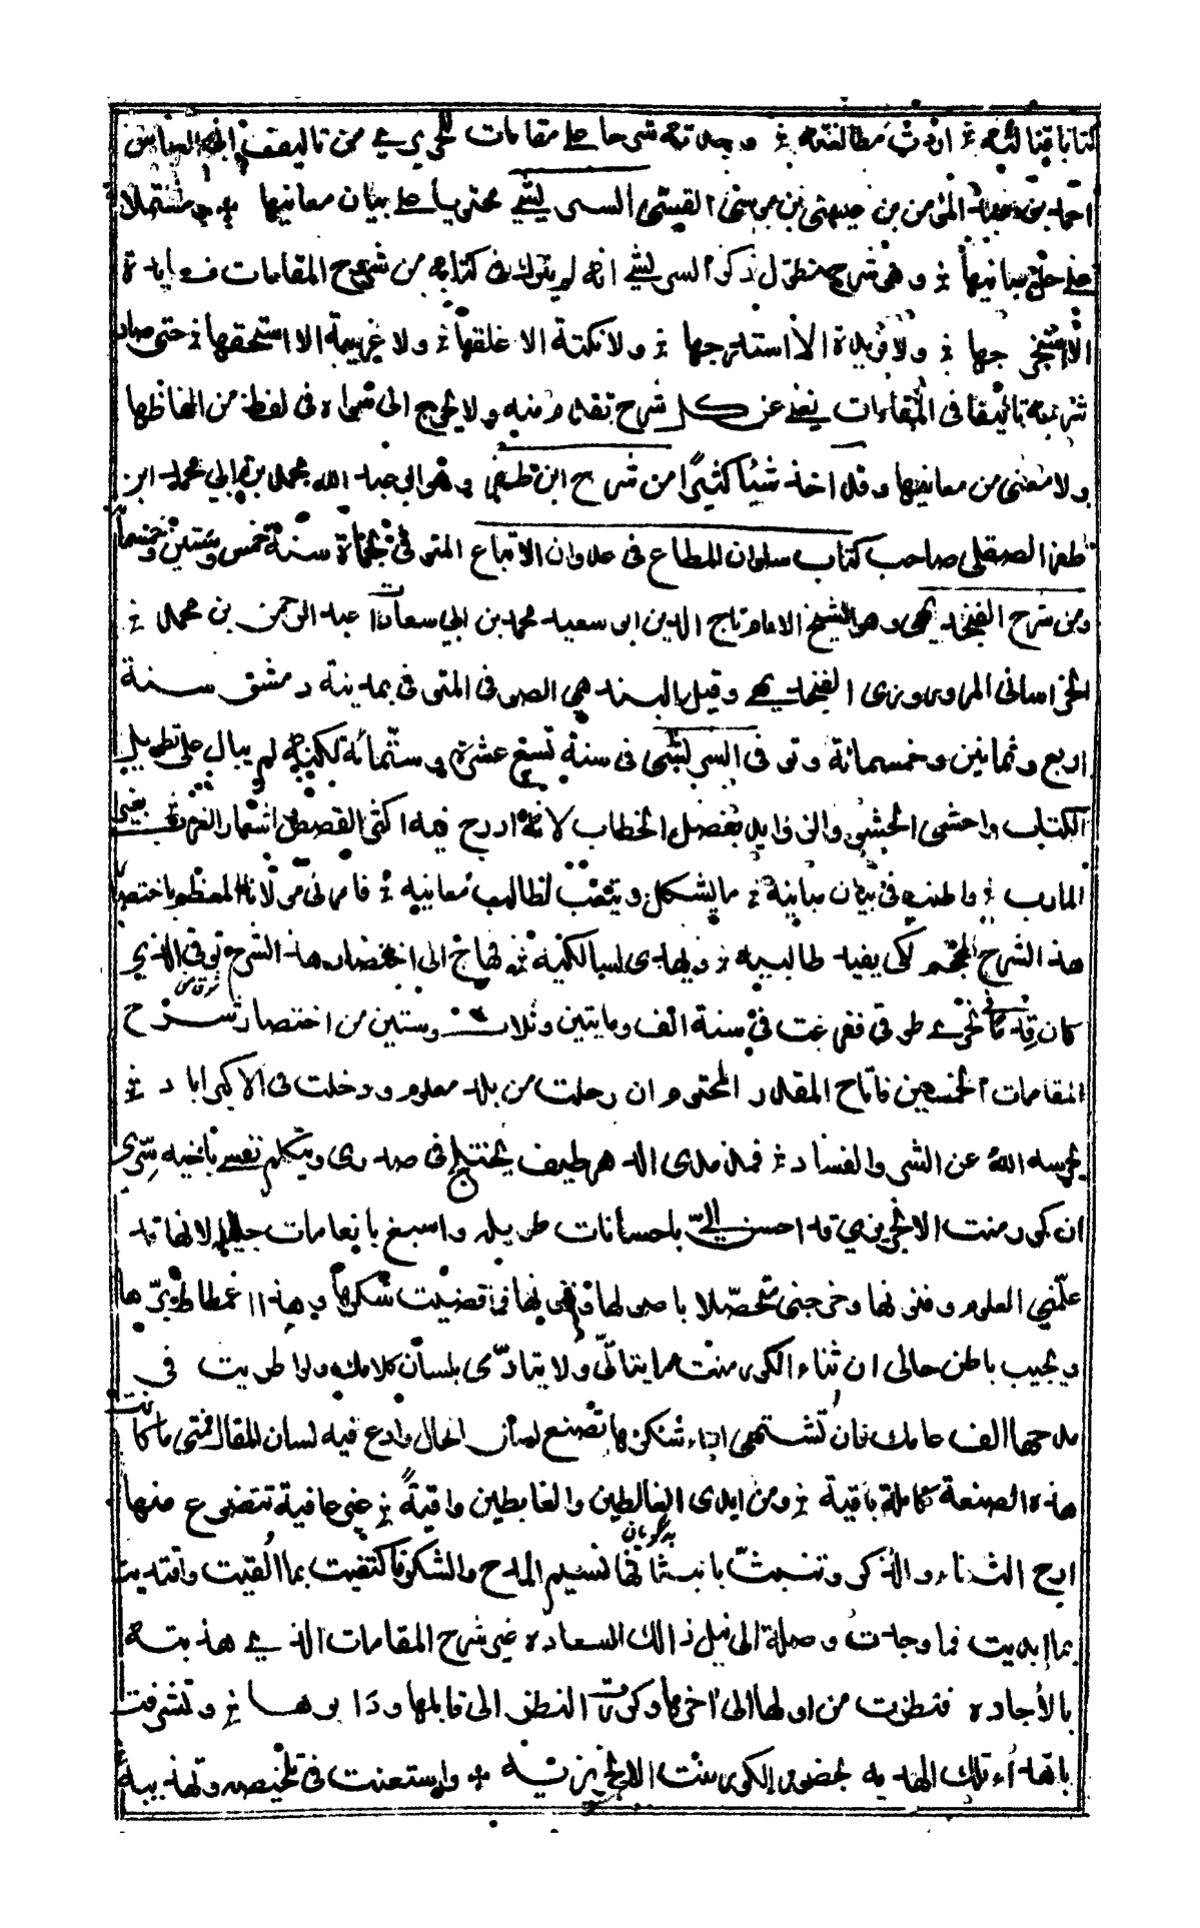 كتابا قنالئه اردت مطالعته ۞ وجدته شرحا على مقامات الحريري من تاليف ابي العباس
احمد بن عبد المؤمن بن عيسى بن موسى القيسى السريشي محتويا على بيان معانيها مشتملا
على حل مبانيها وهو شرح مطول ذكر السريشي انه لم يترك في كتابه من شروح المقامات فايدة
الا استخرجها ولا فريدة الا استدرجها ولا نكتة الا علقها ولا غريبة الا استحقها حتى صار
شرحه تاليفا في المقامات يغني عن كل شرح تقدم منه ولا يحوج الى سواه في لفظ من الفاظها
ولا معنى من معانيها وقد اخذ شيئا كثيرا من شرح ابن ظفر وهو ابي عبد الله محمد بن ابي محمد ابن
ظفر الصقلي صاحب كتاب سلوان المطاع في عدوان الاتباع المتوفى بحماة سنة خمس وستين وخمسمائة
ومن شرح الفنجديهي وهو الشيخ الامام تاج الدين ابو سعيد محمد بن ابي سعادات عبد الرحمن بن محمد
الخراساني المروروزى الفنجديهي وقيل البندهي الصوفى المتوفى بمدينة دمشق سنة
اربع وثمانين وخمسمائة وتوفى السريشى فى سنة تسع عشرة وستمائة لكنه لم يبال على تطويل
الكتاب واحشى الحشو والزوايد بفصل الخطاب لانه ادرج فيه اكثر القصص اشعار العرب بغير
المارب واطنب في بيان مبانيه ما يشكل ويتعب لطالب معانيه فامرنى مولانا المعظم باختصار
هذا الشرح لكى يفيد طالبيه ويهدى لسالكيه فى اختصار هذا الشرح توفى الذي
كان قد طوقى ففرغت فى سنة الف ومايتين وثلاث وستين من اختصار شرح
المقامات الخمسين فاتاح المقدر المحتوم ان رحلت من بلد معلوم ودخلت في الاكبراباد
يحرسه الله عن الشر والفساد فمذ مدى الدهر طيف يختلج فى صدرى ويتكلم نفسى باخيه سرى
ان كورمنت الانجريزي قد احسن الي باحسانات طويله واسبغ بانعامات جليلة لانها قد
علمنى العلوم وفنونها وخرجنى متحصلا باصولها
ويجيب باطن حالى ان ثناء الكورمنت مما يتأتى ولا يتادى بلسان كلامك ولو اطريت في
مدحها الف عامك فان تشتهي اداء شكرها تصنع لسان الحال وادع فيه لسان المقال فمتى ما كانت
هذه الصنعة كاملة باقية ومن ايدى الغالطين والغابطين واقية عن عافية تتضوع منها
ارج الثناء والذكر وتنبث نسيم المدح والشكر فاكتفيت بما القيت واقتديت
بما ابديت فما وجدت وصلة الى نيل ذالك السعاده غير شرح المقامات الذي هذبته
بالاجاده فنظرت من اولها الى اخرها وكررت النظر الى قابلها ودابرها وتشرفت
باهداء تلك الهديه بحضور الكورمنت الانجريزيه واستعنت فى تلخيصه وتهذيبه